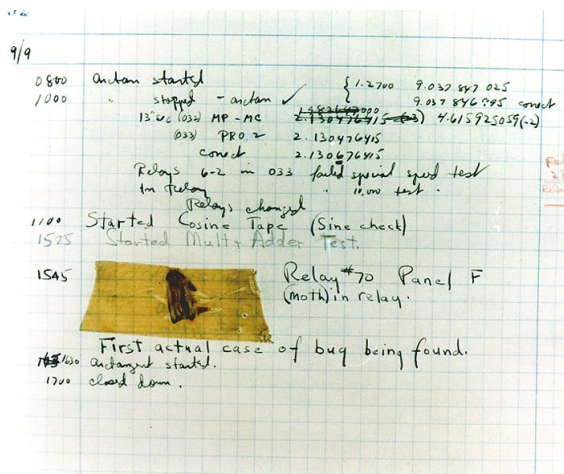 9/9
0800 arctan started
1000 " stopped - arctan ✓ { 1.2700 9.037 847 025
9.037 846 795 correct
13" uc (033) MP-MC 2.130476415 4.615925059(-2)
(033) PRO 2 2.130476415
correct 2.130676415
Relays 6-2 in 033 failed special speed test
in relay " 10,000 test .
Relays changed
1100 Started Cosine Tape (Sine check)
1525 Started Mult+Adder Test.
1545 Relay #70 Panel F
(moth) in relay.
First actual case of bug being found.
1630 arctangent started.
1700 closed down.